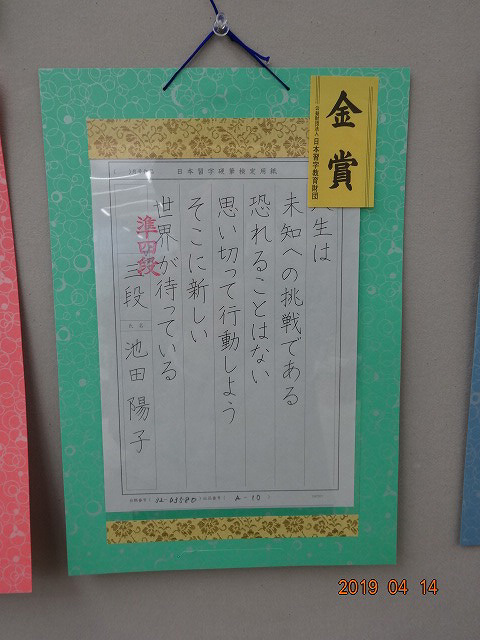 金賞
公益財団法人 日本習字教育財団
日本習字硬筆検定用紙
生は
未知への挑戦である
恐れることはない
思い切って行動しよう
そこに新しい
世界が待っている
準四段
三段
氏名
池田陽子
2019 04 14